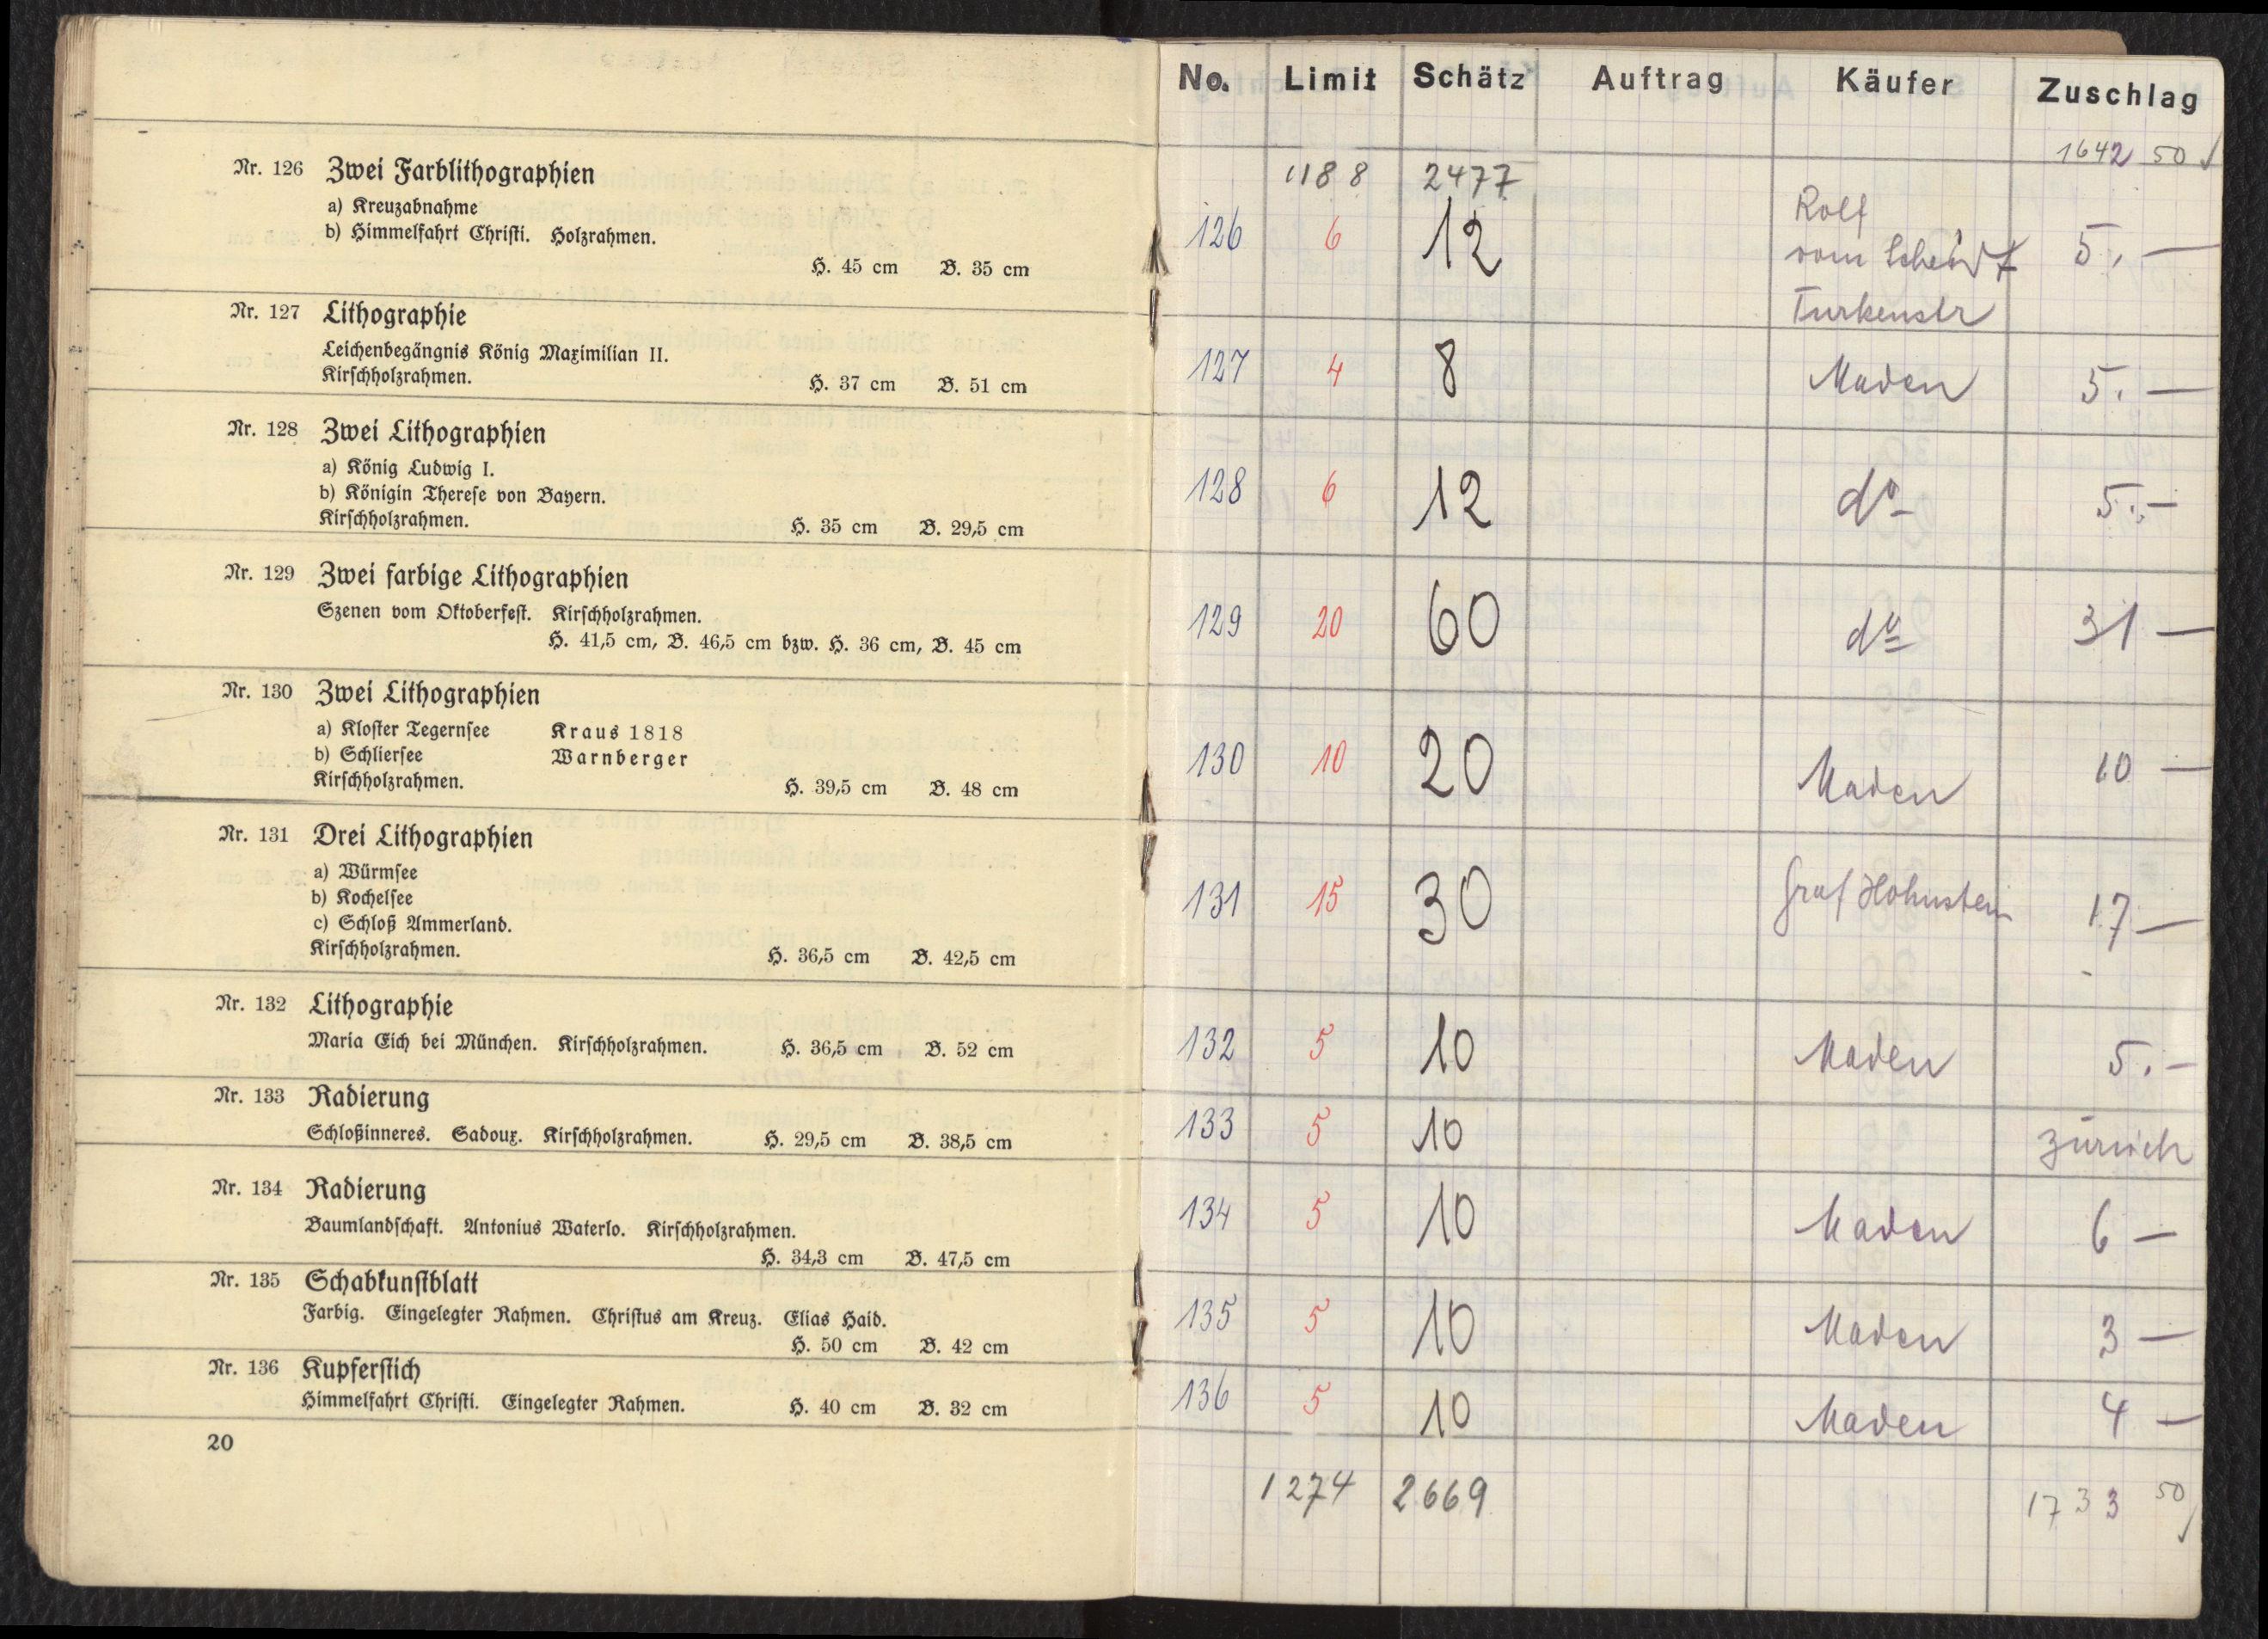 Nr. 126 Zwei Farblithographien
a) Kreuzabnahme
b) Himmelfahrt Christi. Holzrahmen.
H. 45 cm B. 35 cm
Nr. 127 Lithographie
Leichenbegängnis König Maximilian II.
Kirschholzrahmen.
H. 37 cm B. 51 cm
Nr. 128 Zwei Lithographien
a) König Ludwig I.
b) Königin Therese von Bayern.
Kirschholzrahmen.
H. 35 cm B. 29,5 cm
Nr. 129 Zwei farbige Lithographien
Szenen vom Oktoberfest. Kirschholzrahmen.
H. 41,5 cm, B. 46,5 cm bzw. H. 36 cm, B. 45 cm
Nr. 130 Zwei Lithographien
a) Kloster Tegernsee Kraus 1818
b) Schliersee Warnberger
Kirschholzrahmen.
H. 39,5 cm B. 48 cm
Nr. 131 Drei Lithographien
a) Würmsee
b) Kochelsee
c) Schloß Ammerland.
Kirschholzrahmen.
H. 36,5 cm B. 42,5 cm
Nr. 132 Lithographie
Maria Eich bei München. Kirschholzrahmen. H. 36,5 cm B. 52 cm
Nr. 133 Radierung
Schloßinneres. Sadoux. Kirschholzrahmen. H. 29,5 cm B. 38,5 cm
Nr. 134 Radierung
Baumlandschaft. Antonius Waterlo. Kirschholzrahmen.
H. 34,3 cm B. 47,5 cm
Nr. 135 Schabkunstblatt
Farbig. Eingelegter Rahmen. Christus am Kreuz. Elias Haid.
H. 50 cm B. 42 cm
Nr. 136 Kupferstich
Himmelfahrt Christi. Eingelegter Rahmen. H. 40 cm B. 32 cm
20
No. Limit Schätz Auftrag Käufer Zuschlag
1642 50
1188 2477
126 6 12 Rolf
vom 5.—
Turkenstr
127 4 8 Maden 5.—
128 6 12 do 5.—
129 20 60 do 31 —
130 10 20 Maden 10 —
131 15 30 Graf Hohnstein 17 —
132 5 10 Maden 5.—
133 5 10 zurück
134 5 10 Maden 6 —
135 5 10 Maden 3 —
136 5 10 Maden 4 —
1274 2669 1733 50